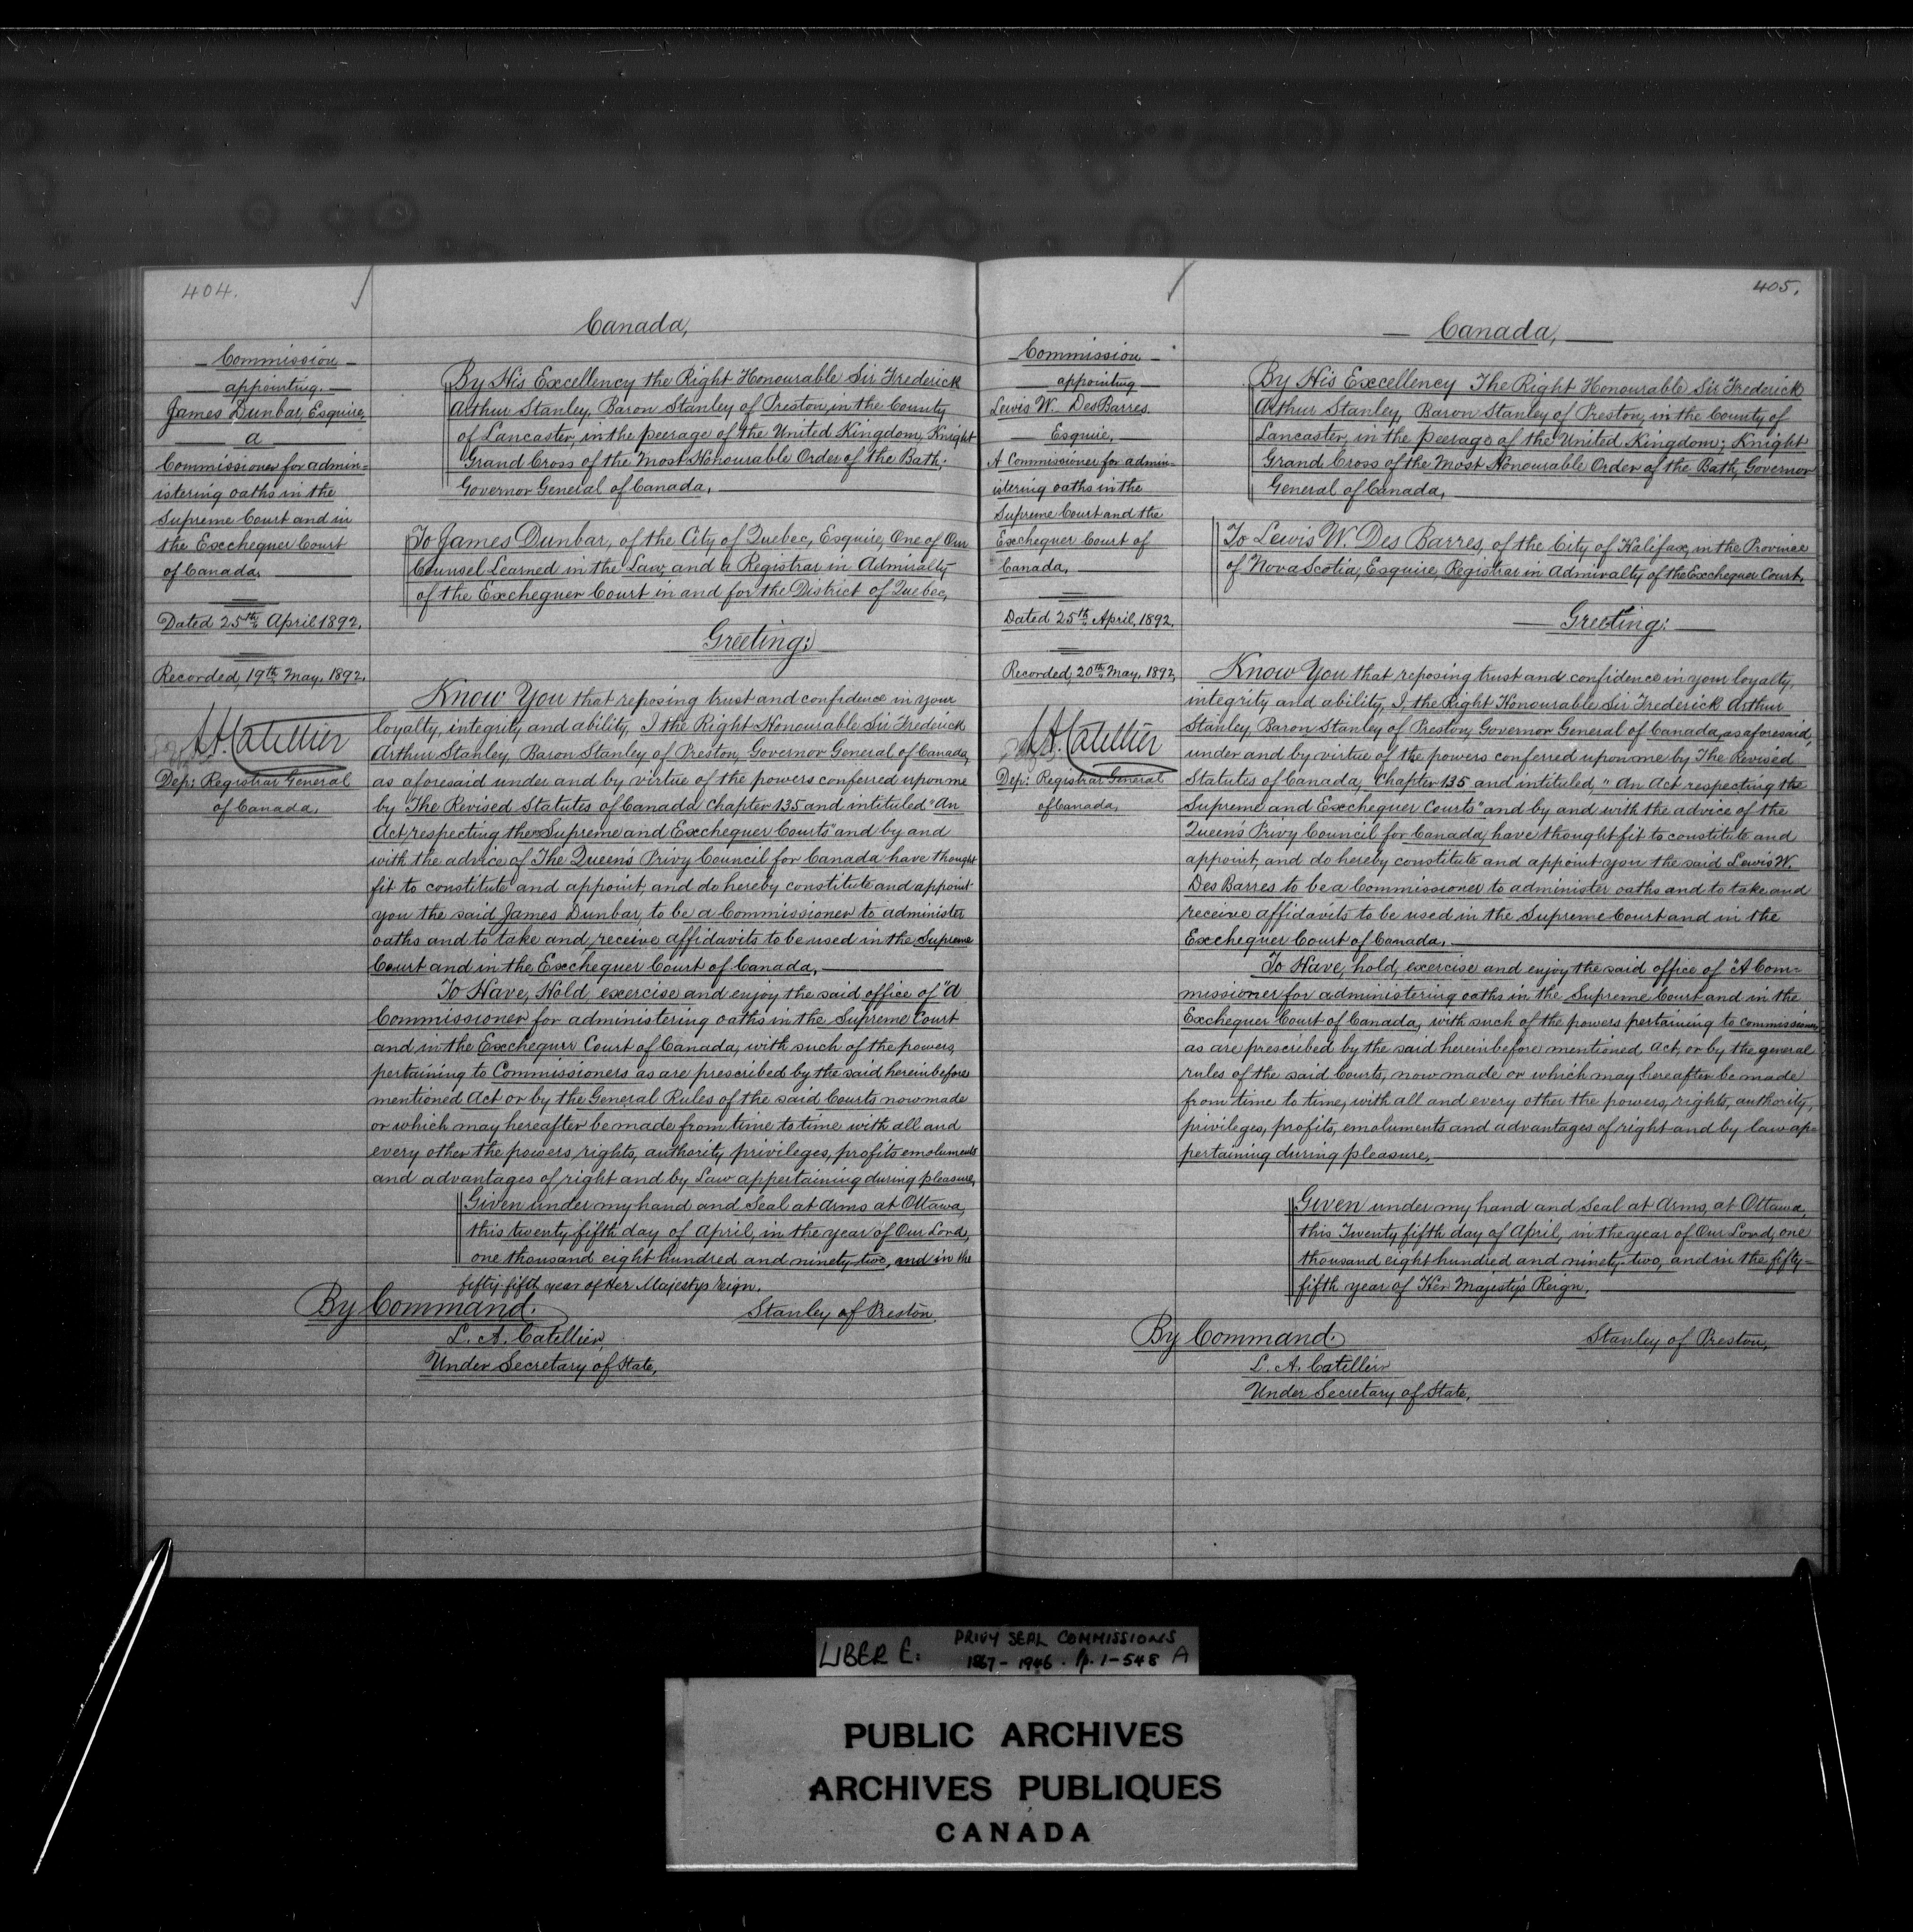 404.
Canada,
Commission
appointing.
James Dunbar, Esquire,
a
Commissioner for admin=
istering oaths in the
Supreme Court and in
the Exchequer Court
of Canada,
Dated 25th April 1892.
Recorded, 19th May, 1892.
L.A. Catellier
Dep: Registrar General
of Canada,
By His Excellency the Right Honourable Sir Frederick
Arthur Stanley, Baron Stanley of Preston, in the County
of Lancaster, in the peerage of the United Kingdom, Knight
Grand Cross of the Most Honourable Order of the Bath.
Governor General of Canada,
To James Dunbar, of the City of Quebec, Esquire, One of Our
Counsel Learned in the Law, and a Registrar in Admiralty
of the Exchequer Court in and for the District of Quebec,
Greeting:
Know You that reposing trust and confidence in your
loyalty, integrity and ability, I the Right Honourable Sir Frederick
Arthur Stanley, Baron Stanley of Preston, Governor General of Canada,
as aforesaid under and by virtue of the powers conferred upon me
by The Revised Statutes of Canada Chapter 135 and intituled "An
Act, respecting the Supreme and Exchequer Courts" and by and
with the advice of The Queen's Privy Council for Canada have thought
fit to constitute and appoint, and do hereby constitute and appoint
you the said James Dunbar, to be a Commissioner to administer
oaths and to take and receive affidavits to be used in the Supreme
Court and in the Exchequer Court of Canada,
To Have, Hold, exercise and enjoy the said office of "A
Commissioner for administering oaths in the Supreme Court
and in the Exchequer Court of Canada, with such of the powers,
pertaining to Commissioners as are prescribed by the said hereinbefore
mentioned Act or by the General Rules of the said Courts now made
or which may hereafter be made from time to time with all and
every other the powers, rights, authority, privileges, profits emoluments
and advantages of right and by Law appertaining during pleasure,
Given under my hand and Seal at Arms at Ottawa,
this twenty fifth day of April, in the year of Our Lord,
one thousand eight hundred and ninety two, and in the
fifty fifth year of Her Majestys reign.
By Command.
Stanley of Preston.
L. A. Catellier,
Under Secretary of State,
405.
Canada,
Commission
appointing
Lewis W. DesBarres.
Esquire,
A Commissioner for admin=
istering oaths in the
Supreme Court and the
Exchequer Court of
Canada,
Dated 25th April, 1892.
Recorded, 20th May, 1892,
L.A. Catellier
Dep: Registrar General
of Canada,
By His Excellency The Right Honourable Sir Frederick
Arthur Stanley, Baron Stanley of Preston, in the County of
Lancaster, in the peerage of the United Kingdom; Knight
Grand Cross of the Most Honourable Order of the Bath, Governor
General of Canada,
To Lewis W. Des Barres, of the City of Halifax, in the Province
of Nova Scotia, Esquire, Registrar in Admiralty of the Exchequer Court,
Greeting:
Know You that reposing trust and confidence in your loyalty,
integrity and ability, I, the Right Honourable Sir Frederick Arthur
Stanley, Baron Stanley of Preston, Governor General of Canada, as aforesaid,
under and by virtue of the powers conferred upon me by The Revised
Statutes of Canada, Chapter 135 and intituled, "An Act respecting the
Supreme and Exchequer Courts" and by and with the advice of the
Queen's Privy Council for Canada, have thought fit to constitute and
appoint, and do hereby constitute and appoint you the said Lewis W.
Des Barres to be a Commissioner to administer oaths and to take and
receive affidavits to be used in the Supreme Court and in the
Exchequer Court of Canada,
To Have, hold, exercise and enjoy the said office of "A Com=
missioner for administering oaths in the Supreme Court and in the
Exchequer Court of Canada, with such of the powers pertaining to commissioners
as are prescribed by the said hereinbefore mentioned Act, or by the general
rules of the said Courts, now made or which may hereafter be made
from time to time, with all and every other the powers, rights, authority,
privileges, profits, emoluments and advantages of right and by law ap=
pertaining during pleasure,
Given under my hand and Seal at Arms, at Ottawa,
this Twenty fifth day of April, in the year of Our Lord, one
thousand eight hundred and ninety-two, and in the fifty=
fifth year of Her Majesty's Reign,
By Command.
Stanley of Preston,
L. A. Catellier
Under Secretary of State,
LIBER E. PRIVY SEAL COMMISSIONS
1867-1946. Pp. 1-548 A
PUBLIC ARCHIVES
ARCHIVES PUBLIQUES
CANADA